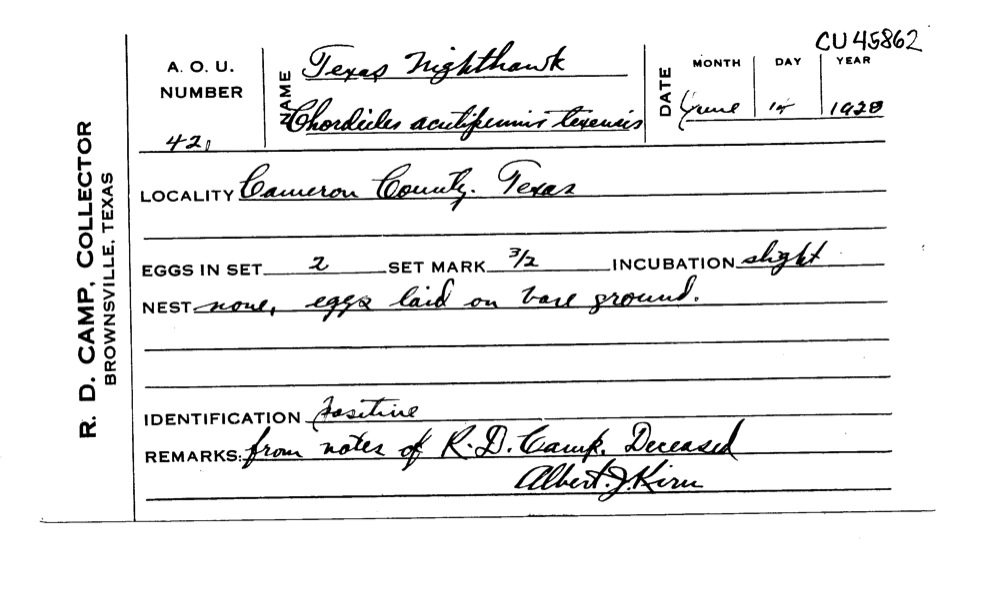 CU 45862
R. D. CAMP, COLLECTOR
BROWNSVILLE, TEXAS
A. O. U.
NUMBER
421
NAME Texas Nighthawk
Chordieles acutipennis texensis
DATE
MONTH DAY YEAR
June 1928
LOCALITY Cameron County. Texas
EGGS IN SET 2 SET MARK 3/2 INCUBATION slight
NEST none, eggs laid on bare ground.
IDENTIFICATION Positive
REMARKS: from notes of R. D. Camp. Deceased
Albert. J. Kirn